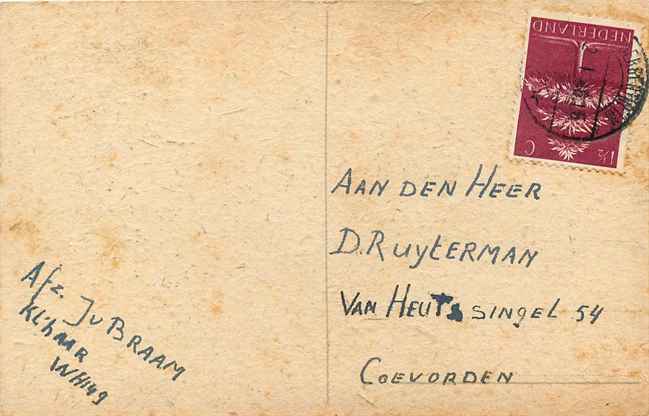 NEDERLAND
1½ C
AAN DEN HEER
D. RUYTERMAN
VAN HEUTS SINGEL 54
COEVORDEN
Afz. J v BRAAM
WH149